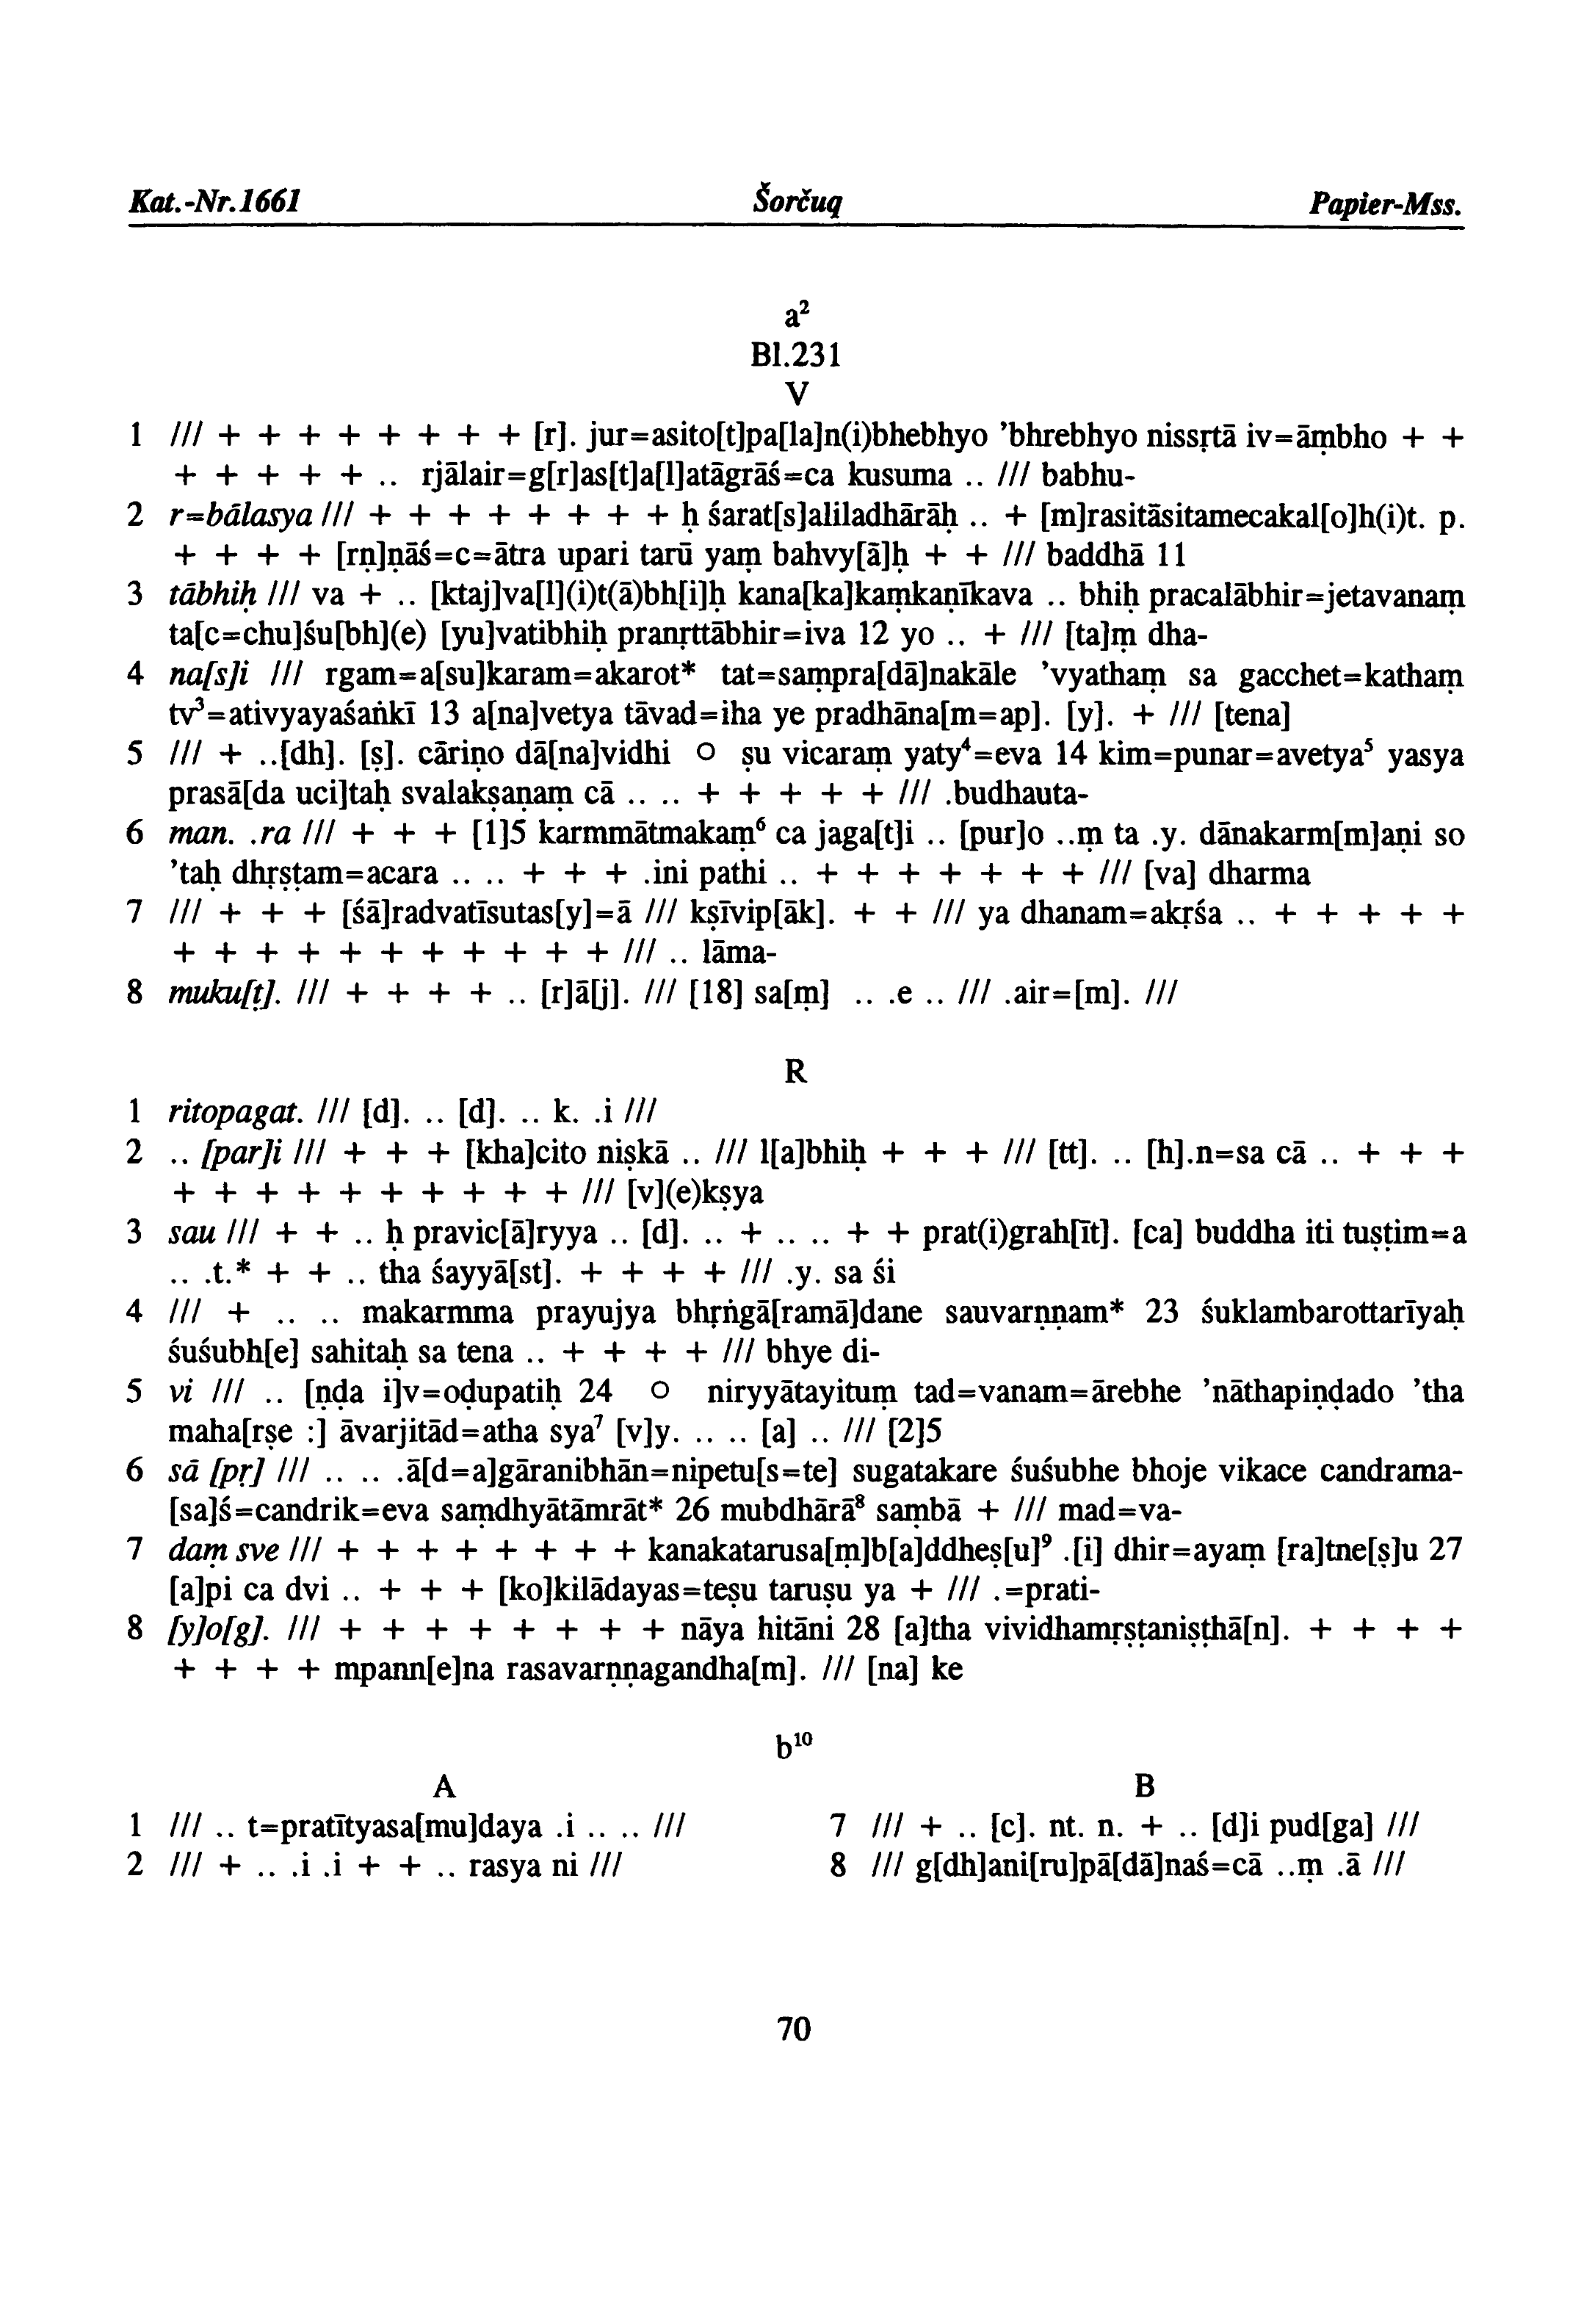 Kat.-Nr.1661 Šorčuq Papier-Mss.
a²
Bl.231
V
1 /// + + + + + + + + [r]. jur=asito[t]pa[la]n(i)bhebhyo ’bhrebhyo nissṛtā iv=āṃbho + +
+ + + + + .. rjālair=g[r]as[t]a[l]atāgrāś=ca kusuma .. /// babhu-
2 r=bālasya /// + + + + + + + + ḥ śarat[s]aliladhārāḥ .. + [m]rasitāsitamecakal[o]h(i)t. p.
+ + + + [rṇ]ṇāś=c=ātra upari tarū yaṃ bahvy[ā]ḥ + + /// baddhā 11
3 tābhiḥ /// va + .. [ktaj]va[l](i)t(ā)bh[i]ḥ kana[ka]kaṃkaṇīkava .. bhiḥ pracalābhir=jetavanaṃ
ta[c=chu]śu[bh](e) [yu]vatibhiḥ pranṛttābhir=iva 12 yo .. + /// [ta]ṃ dha-
4 na[s]i /// rgam=a[su]karam=akarot* tat=saṃpra[dā]nakāle ’vyathaṃ sa gacchet=kathaṃ
tv³=ativyayaśaṅkī 13 a[na]vetya tāvad=iha ye pradhāna[m=ap]. [y]. + /// [tena]
5 /// + ..[dh]. [ṣ]. cāriṇo dā[na]vidhi ○ ṣu vicaraṃ yaty⁴=eva 14 kim=punar=avetya⁵ yasya
prasā[da uci]taḥ svalakṣaṇaṃ cā .. .. + + + + + /// .budhauta-
6 man. .ra /// + + + [1]5 karmmātmakaṃ⁶ ca jaga[t]i .. [pur]o ..ṃ ta .y. dānakarm[m]aṇi so
’taḥ dhṛṣṭam=acara .. .. + + + .ini pathi .. + + + + + + + /// [va] dharma
7 /// + + + [śā]radvatīsutas[y]=ā /// kṣīvip[āk]. + + /// ya dhanam=akṛśa .. + + + + +
+ + + + + + + + + + + /// .. lāma-
8 muku[ṭ]. /// + + + + .. [r]ā[j]. /// [18] sa[ṃ] .. .e .. /// .air=[m]. ///
R
1 ritopagat. /// [d]. .. [d]. .. k. .i ///
2 .. [par]i /// + + + [kha]cito niṣkā .. /// l[a]bhiḥ + + + /// [tt]. .. [h].n=sa cā .. + + +
+ + + + + + + + + + /// [v](e)kṣya
3 sau /// + + .. ḥ pravic[ā]ryya .. [d]. .. + .. .. + + prat(i)grah[īt]. [ca] buddha iti tuṣṭim=a
.. .t.* + + .. tha śayyā[st]. + + + + /// .y. sa śi
4 /// + .. .. makarmma prayujya bhṛṅgā[ramā]dane sauvarṇṇam* 23 śuklambarottarīyaḥ
śuśubh[e] sahitaḥ sa tena .. + + + + /// bhye di-
5 vi /// .. [ṇḍa i]v=oḍupatiḥ 24 ○ niryyātayituṃ tad=vanam=ārebhe ’nāthapiṇḍado ’tha
maha[rṣe :] āvarjitād=atha sya⁷ [v]y. .. .. [a] .. /// [2]5
6 sā [pṛ] /// .. .. .ā[d=a]gāranibhān=nipetu[s=te] sugatakare śuśubhe bhoje vikace candrama-
[sa]ś=candrik=eva saṃdhyātāmrāt* 26 mubdhārā⁸ saṃbā + /// mad=va-
7 daṃ sve /// + + + + + + + + kanakatarusa[ṃ]b[a]ddheṣ[u]⁹ .[i] dhir=ayaṃ [ra]tne[ṣ]u 27
[a]pi ca dvi .. + + + [ko]kilādayas=teṣu taruṣu ya + /// .=prati-
8 [y]o[g]. /// + + + + + + + + nāya hitāni 28 [a]tha vividhamṛṣṭaniṣṭhā[n]. + + + +
+ + + + mpann[e]na rasavarṇṇagandha[m]. /// [na] ke
b¹⁰
A B
1 /// .. t=pratītyasa[mu]daya .i .. .. /// 7 /// + .. [c]. nt. n. + .. [d]i pud[ga] ///
2 /// + .. .i .i + + .. rasya ni /// 8 /// g[dh]ani[ru]pā[dā]naś=cā ..ṃ .ā ///
70